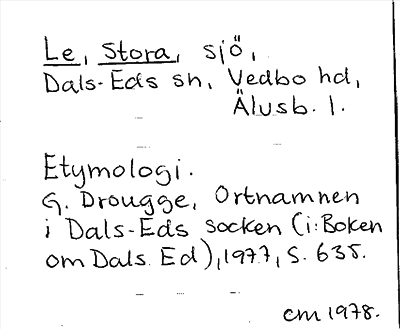 Le, Stora, sjö,
Dals-Eds sn, Vedbo hd,
Älvsb. l.
Etymologi.
G. Drougge, Ortnamnen
i Dals-Eds socken (i: Boken
om Dals Ed), 1977, s. 635.
cm 1978.